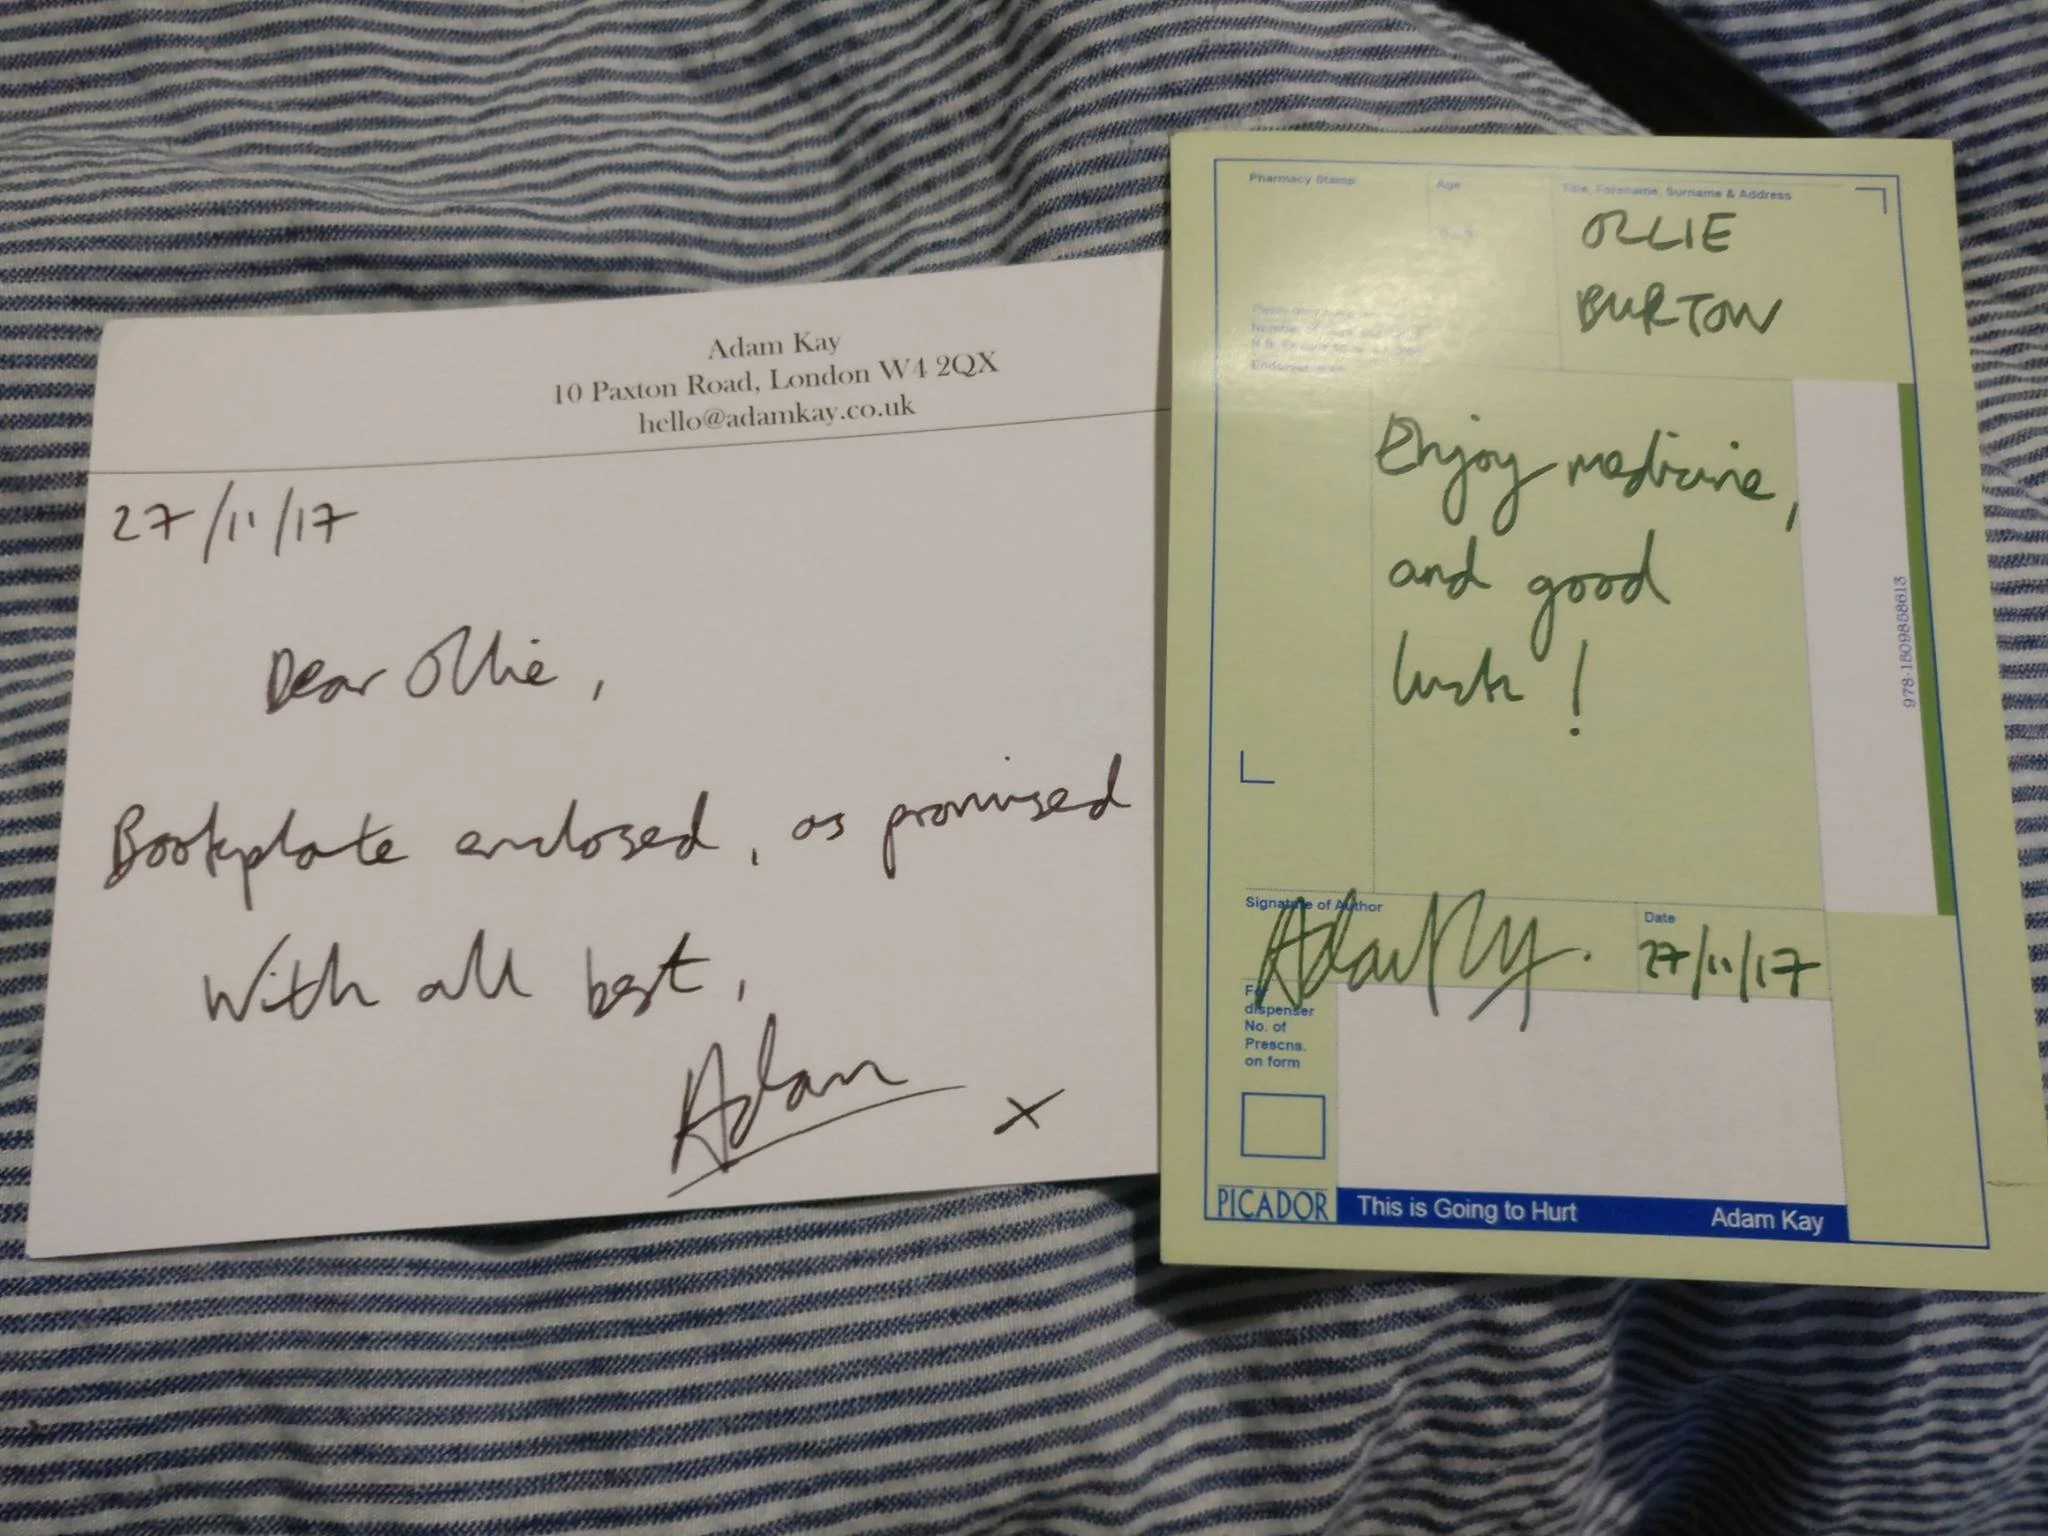 Adam Kay
10 Paxton Road, London W4 2QX
hello@adamkay.co.uk
27/11/17
Dear Ollie,
Bookplate enclosed, as promised
With all best,
Adam x
Pharmacy Stamp
Age
Title, Forename, Surname & Address
OLLIE
BURTON
Enjoy medicine,
and good
luck!
978-1509858613
Signature of Author
Adam Kay.
Date
27/11/17
For
dispenser
No. of
Prescns.
on form
PICADOR
This is Going to Hurt
Adam Kay